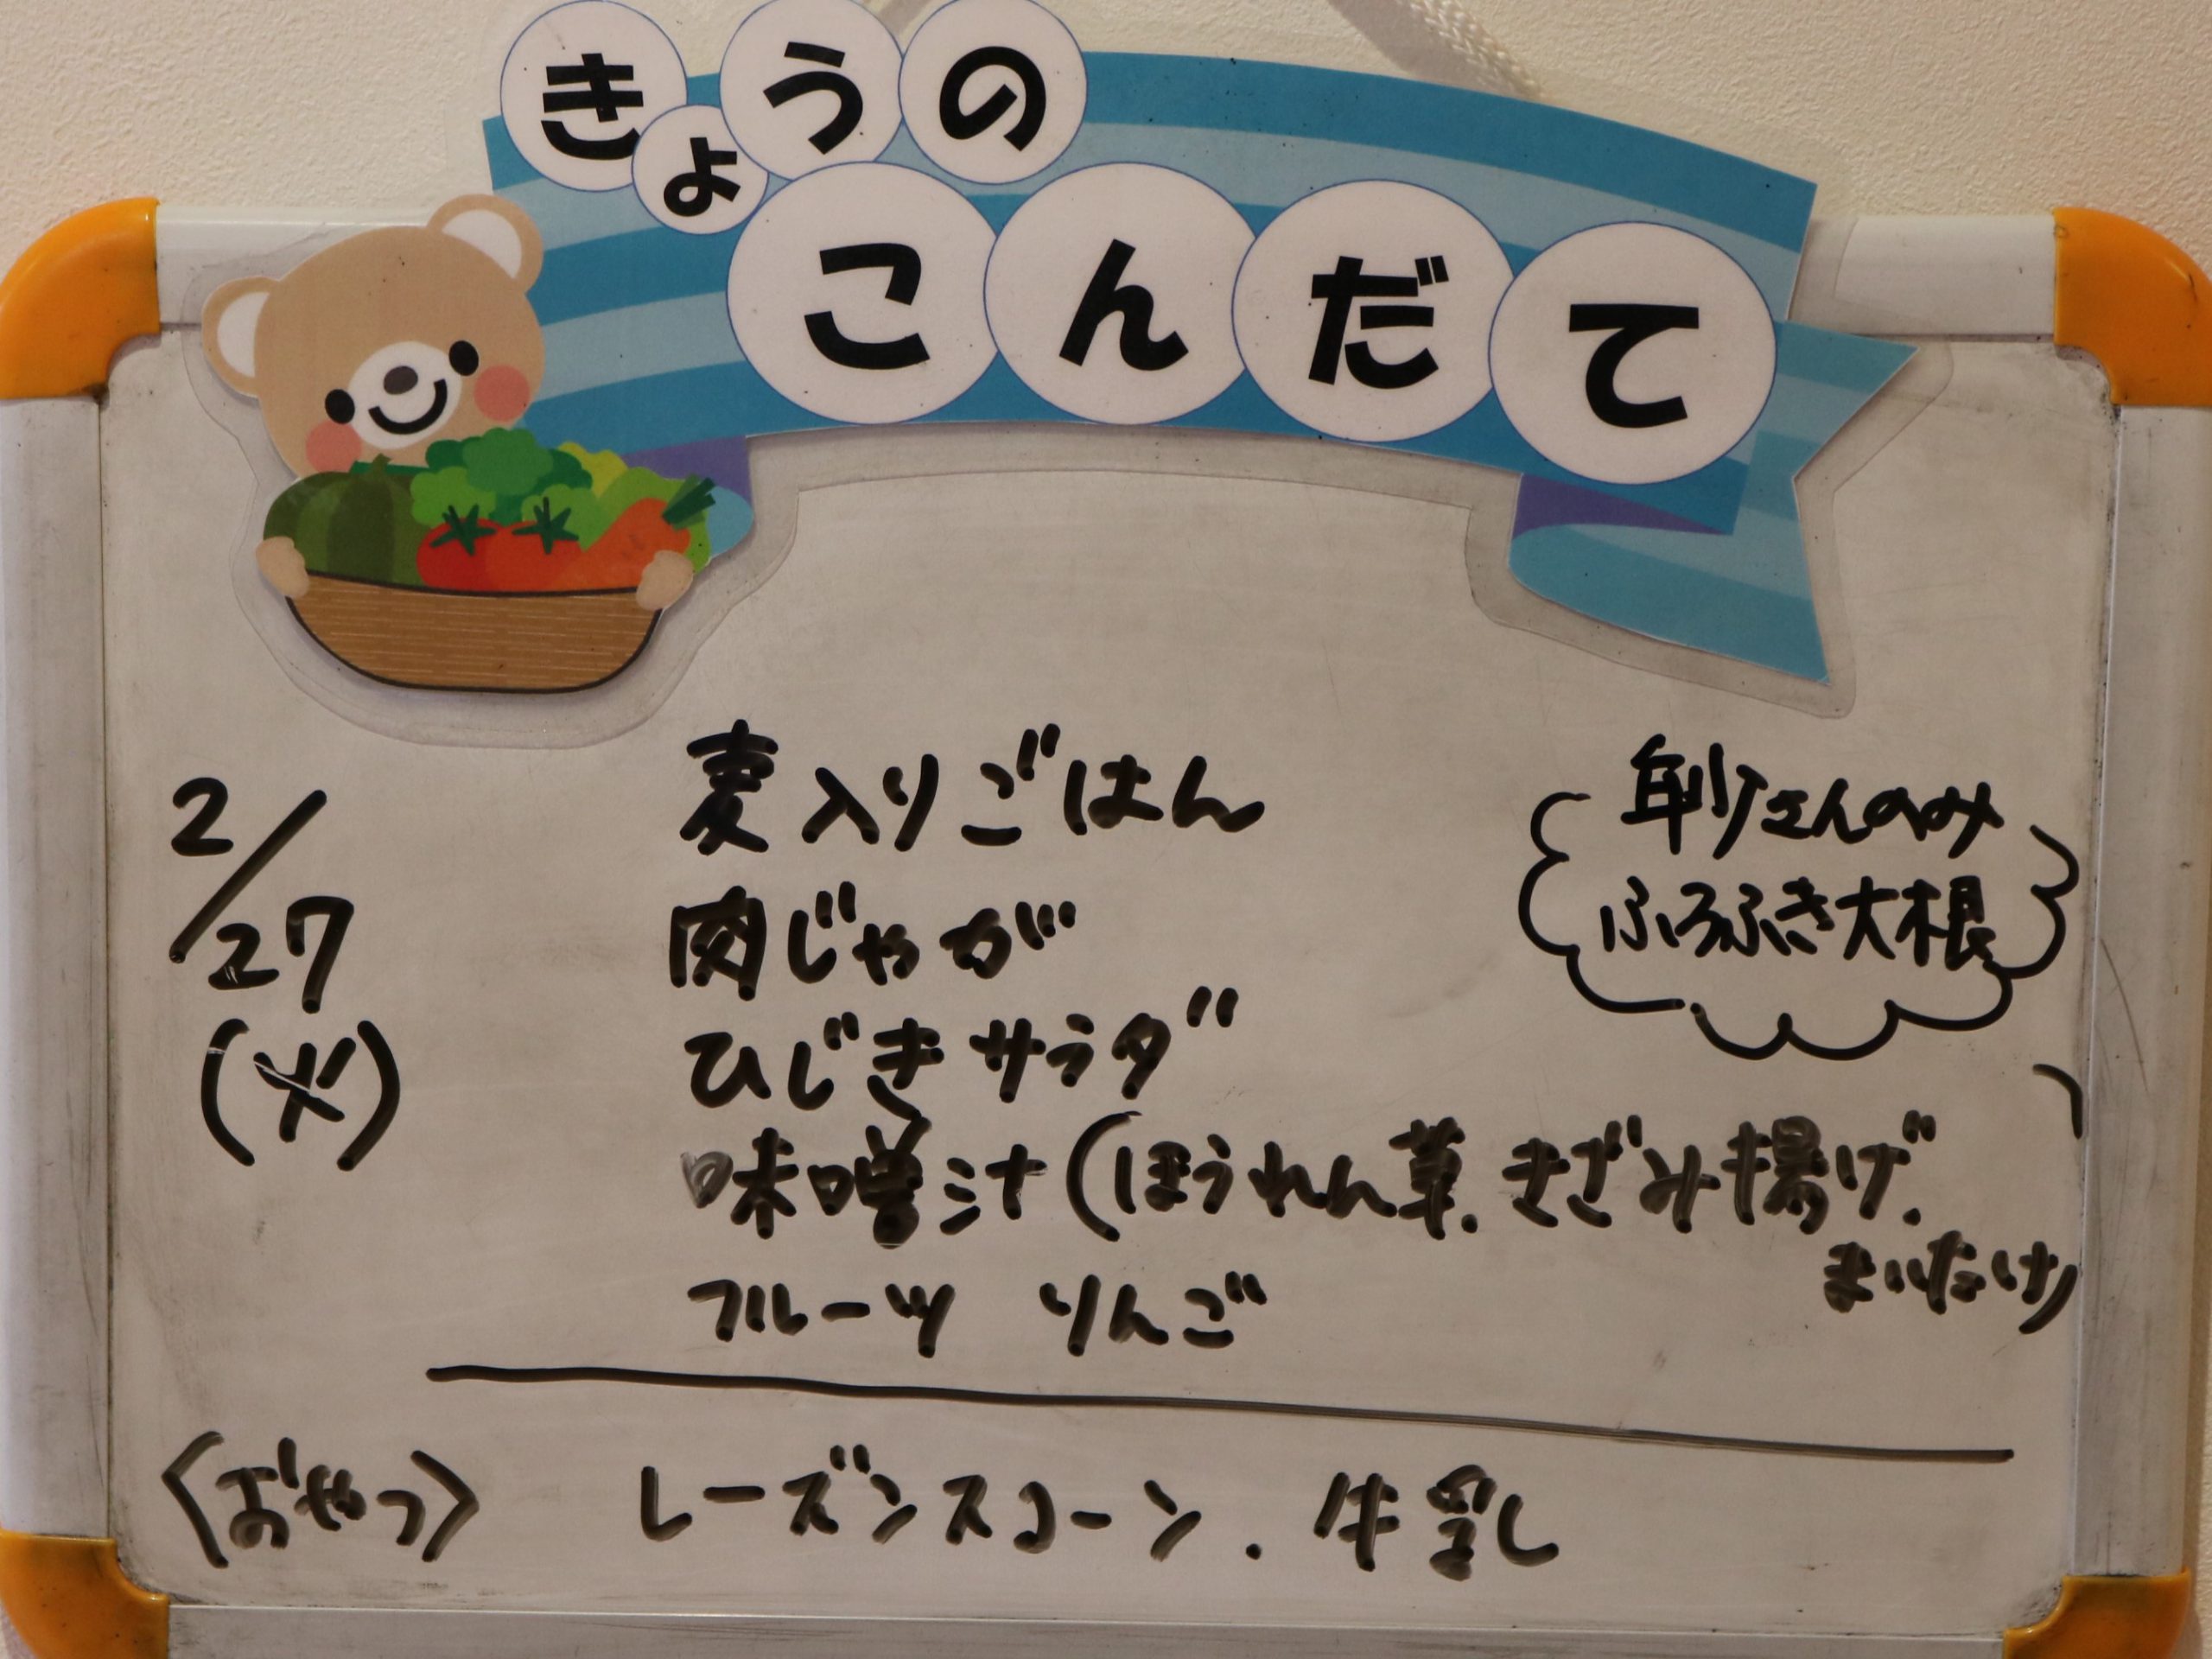 きょうの
こんだて
2/27
(火)
麦入りごはん
肉じゃが
ひじきサラダ
味噌汁(ほうれん草.きざみ揚げ.
まいたけ)
フルーツ りんご
さんのみ
ふろふき大根
〈おやつ〉 レーズンスコーン.牛乳